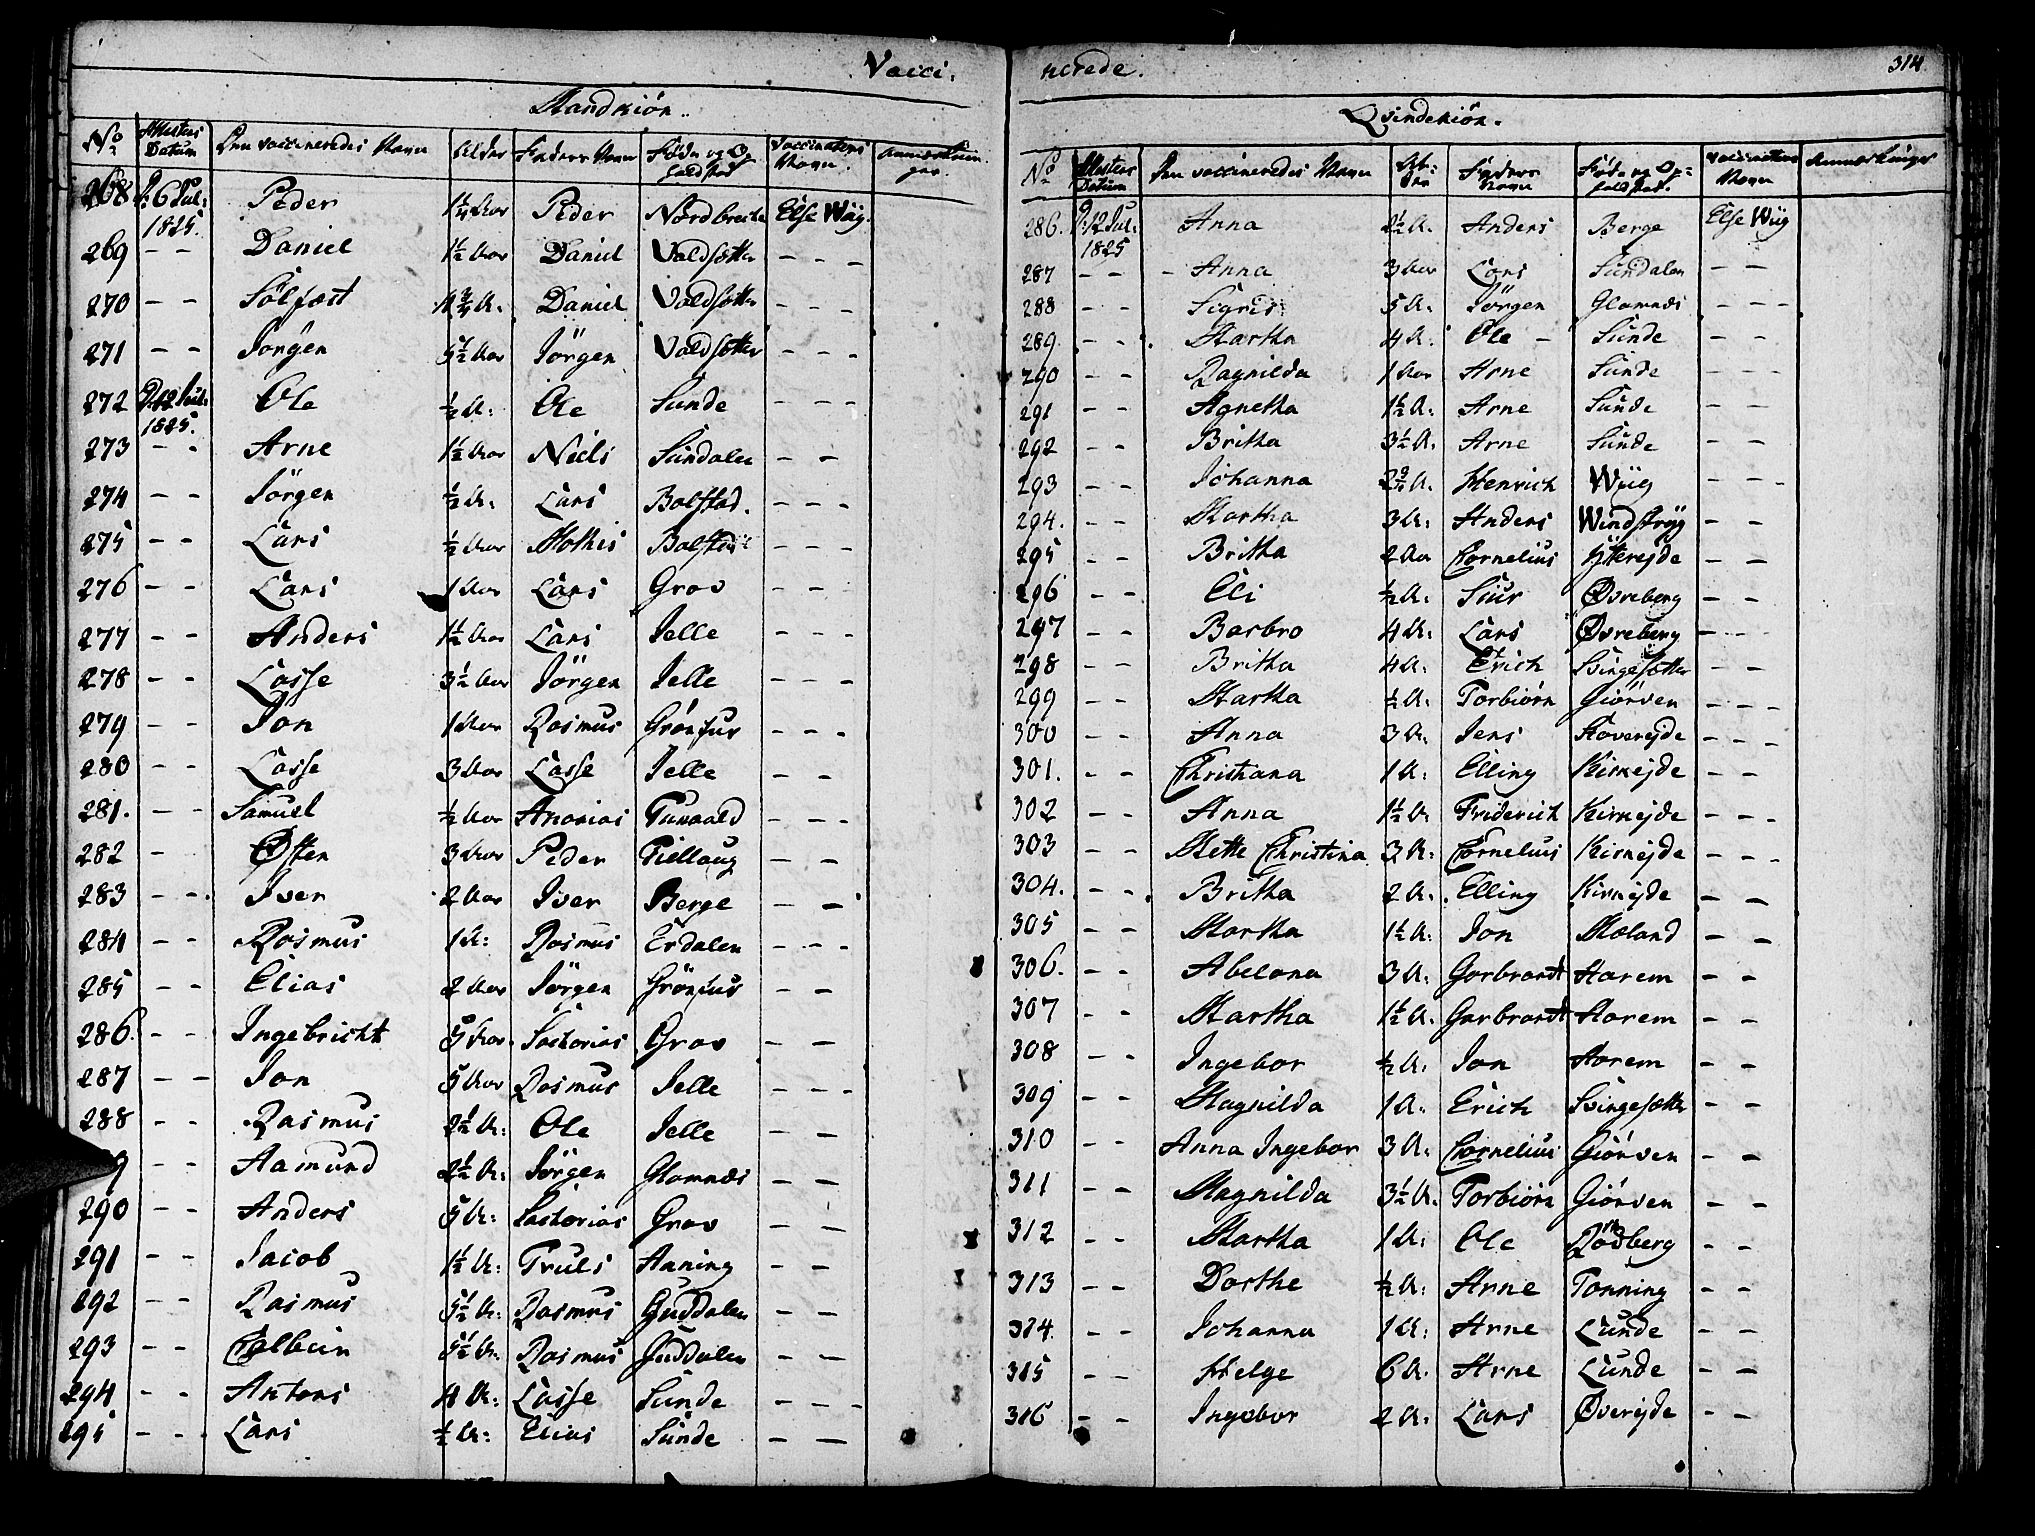 Vacci-
Mandkiön.
No Attestens Datum Den vaccineredes Navn Alder Faderens Navn Föde og Opholdsted Vaccinateurs Navn Anmærkninger
268 D: 6 Jul: 1825. Peder 1¼ Aar Peder Nordbrecke Else Wiig.
269 - - Daniel 1½ Aar Daniel Voldsætter - - -
270 - - Sölfæst A: Daniel Voldsætter - - -
271 - - Jörgen 5½ Aar Jörgen Voldsætter - - -
272 D: 12 Jul: 1825. Ole ½ A: Ole Sunde - - -
273 - - Arne 1½ Aar Niels Sundalen - -
274 - - Jörgen ½ A: Lars Bolstad. - - -
275 - - Lars ½ Aar Mathis Bolstad - - -
276 - - Lars 1 Aar Lars Grov - -
277 - - Anders 1½ Aar Lars Jelle - - -
278 - - Lasse 3½ Aar Jörgen Jelle - - -
279 - - Jon 1 Aar Rasmus Grönfur - - -
280 - - Lasse 3 Aar Lasse Jelle - -
281. - - Samuel ½ Aar Ananias Tunaald - -
282 - Østen 3 Aar Peder Tiellaug - -
283 - - Iver 2 Aar Iver Berge - -
284 - - Rasmus 1 A: Rasmus Erdalen - - -
285 - - Elias 2 Aar Jörgen Grönfur - -
286. - - Ingebricht 5 Aar Sacharias Grov - -
287 - - Jon 5 Aar Rasmus Jelle - - -
288 - - Rasmus 2½ A: Ole Jelle - -
9 - - Aamund 2½ A: Jörgen Glomnæs - -
290 - - Anders 5 A: Sacharias Grov - -
291 - - Jacob 1½ A: Truls Haning - -
292 - - Rasmus 5½ A: Rasmus Guddalen - -
293 - - Colbein 5½ A: Rasmus Guddalen - -
294 - - Antoni 4 A: Lasse Sunde - - -
295 - - Lars ½ A: Elias Sunde - -
nerede. 314
Qvindekiön.
No Attestens Datum Den vaccineredes Navn Alderen Faderens Navn Föde og Opholdsted. Vaccinateurs Navn Anmærkninger
286. D: 12 Jul: 1825 Anna 2½ A. Anders Berge Else Wiig
287 - - - Anna 3 Aar Lars Sundalen - -
288 - - Sigris 5 A: Jörgen Glomnæs - - -
289. - - Martha 4 A: Ole - Sunde - - -
290 - - Ragnilda 1 Aar Arne Sunde - - -
291 - - Agnetha 1½ A: Arne Sunde - - -
292 - - Britha 3½ A: Arne Sunde - -
293 - - Johanna A. Henrich Wiig - - -
294. - - Martha 3 A: Anders Windstryg - -
295 - - Britha 2 Aar Cornelius Ytterejde - -
296 - - Eli ½ A: Siur Øvreberg - -
297 - - Barbro 4 A: Lars Øvreberg - -
298 - - Britha 4 A: Erich Svingesætter - -
299 - - Martha ½ A: Torbiörn Giörven - - -
300 - - Anna 3 A: Jens Haverejde - - -
301. - - Christiana 1 A: Elling Kirkejde - -
302 - - Anna 1½ A: Friderich Kirkejde - - -
303 - - Mette Christina 3 A: Cornelius Kirkejde - - -
304. - - Britha 2 A. Elling Kirkejde - -
305 - - Martha 1½ A: Jon Moland - -
306. - - Abelona 3 A: Garbrandt Aarem - -
307 - - Martha 1½ A. Garbrandt Aarem - -
308 - - Ingebor ½ A: Jon Aarem - -
309 - - Magnilda 1 A: Erich Svingesætter - -
310 - - Anna Ingebor 3 A: Cornelius Giörven - -
311 - - Magnilda 3½ A. Torbiörn Giörven - -
312 - - Martha 1 A: Ole Rödberg - -
313 - - Dorthe ½ A: Arne Tonning - -
314. - - Johanna 1 A: Arne Lunde - -
315 - - Helge 6 A: Arne Lunde - -
316 - - Ingebor 2 A: Lars Øverejde - -